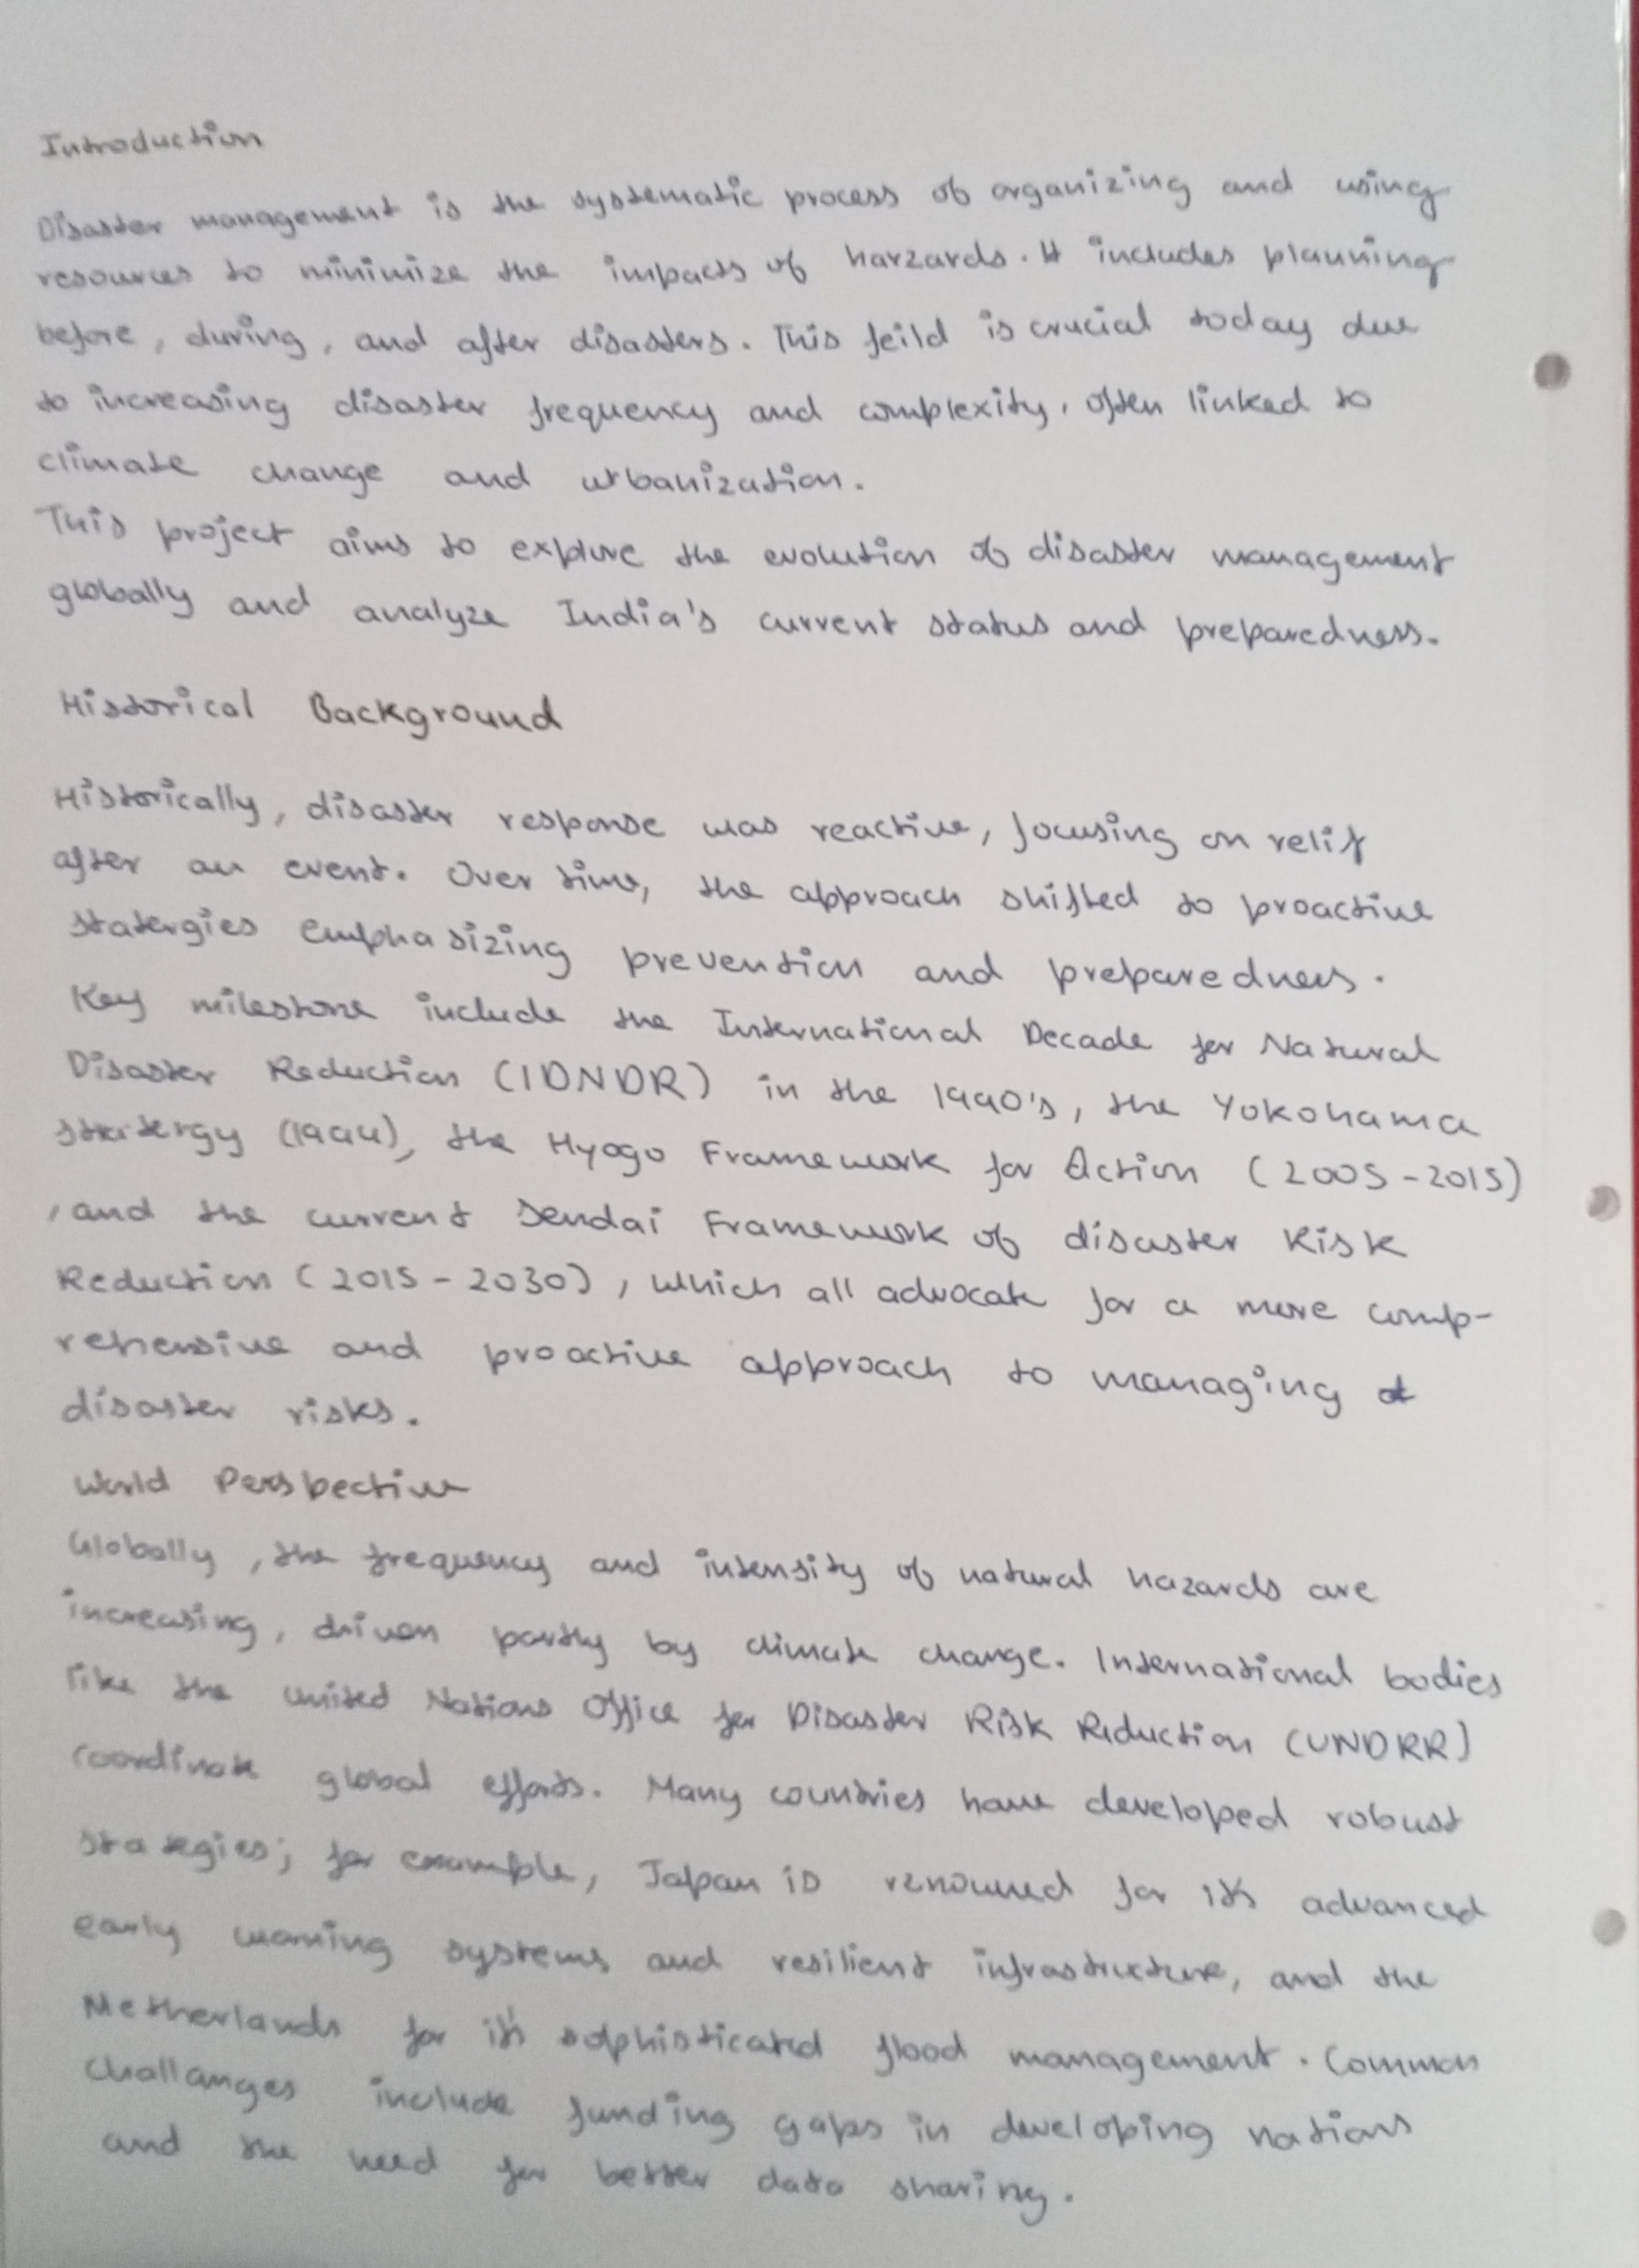 Introduction
Disaster management is the systematic process of organizing and using
resources to minimize the impacts of harzards. It includes planning
before, during, and after disasters. This feild is crucial today due
to increasing disaster frequency and complexity, often linked to
climate change and urbanization.
This project aims to explore the evolution of disaster management
globally and analyze India's current status and preparedness.
Historical Background
Historically, disaster response was reactive, focusing on relif
after an event. Over time, the approach shifted to proactive
statergies emphasizing prevention and preparedness.
Key milestone include the International Decade for Natural
Disaster Reduction (IDNDR) in the 1990's, the Yokohama
statergy (1994), the Hyogo Framework for Action (2005-2015)
, and the current Sendai Framework of disaster Risk
Reduction (2015-2030), which all advocate for a more comp-
rehensive and proactive approach to managing
disaster risks.
World Perspective
Globally, the frequency and intensity of natural hazards are
increasing, driven partly by climate change. International bodies
like the united Nations Office for Disaster Risk Reduction (UNDRR)
coordinate global efforts. Many countries have developed robust
stategies; for example, Japan is renowned for its advanced
early warning systems and resilient infrastructure, and the
Netherlands for its sophisticated flood management. Common
challanges include funding gaps in developing nations
and the need for better data sharing.